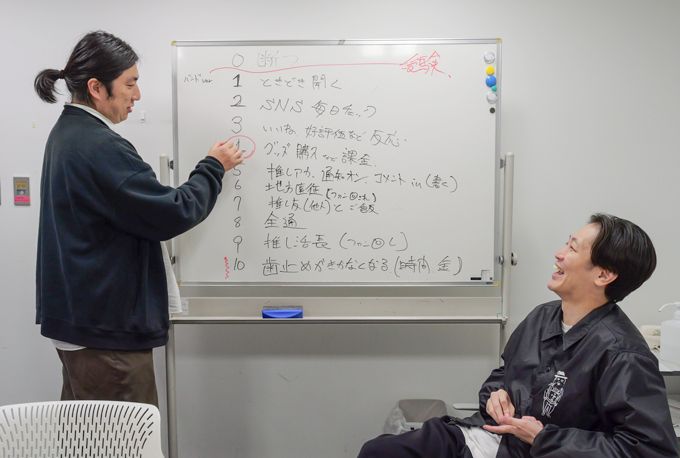 0 断つ
1 ときどき開く
2 SNS 毎日チェック
3 いいね、好評価など 反応.
4 グッズ購入など 課金
5 推しアカ、通知オン、コメント in (書く)
6 地方直住
7 推し友 (他人) と ご飯
8 全通
9 推し活長 (ファン回し)
10 歯止めがきかなくなる (時間 金)